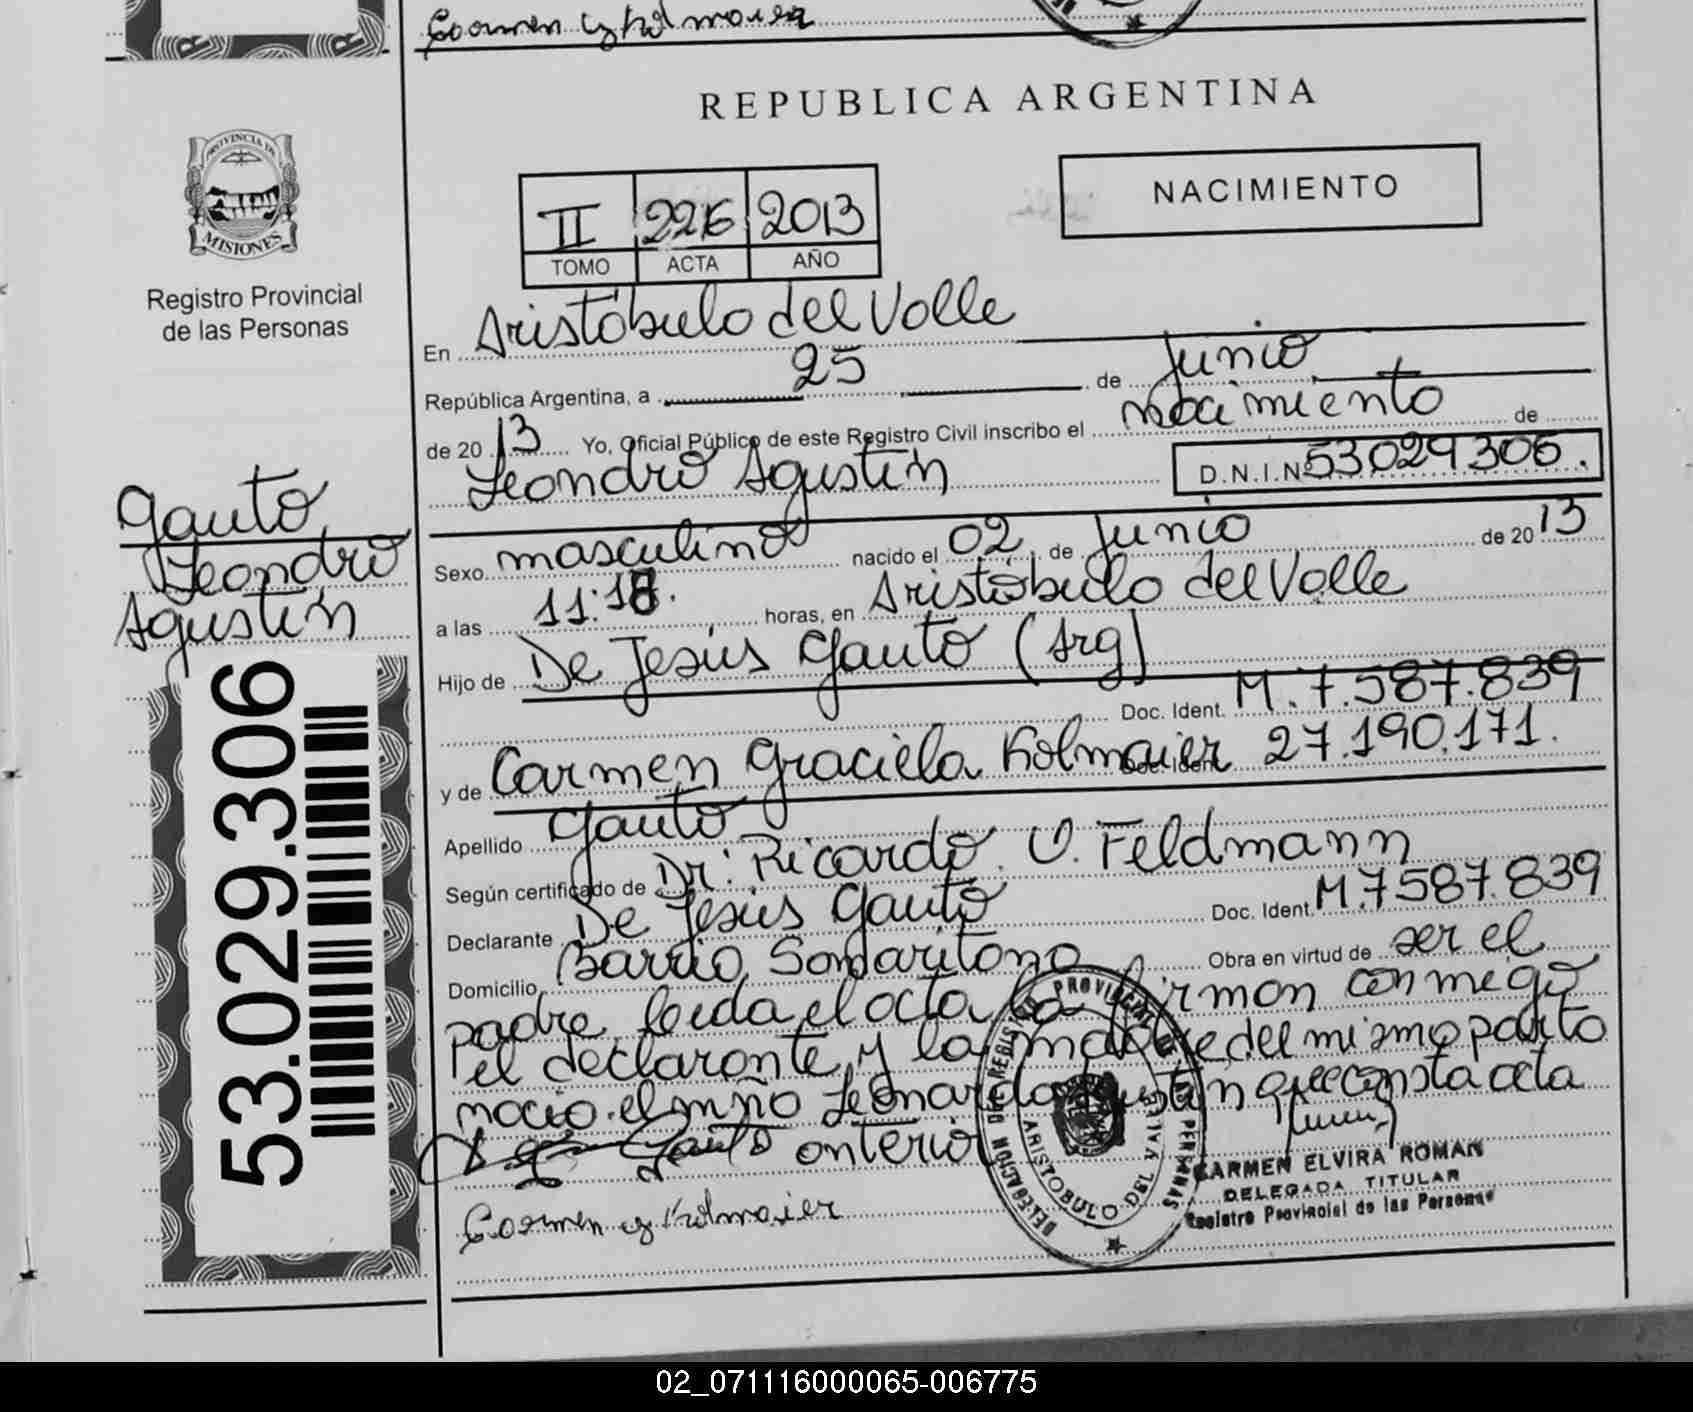 Carmen G Kolmaier
REPUBLICA ARGENTINA
PROVINCIA DE
MISIONES
Registro Provincial
de las Personas
NACIMIENTO
II 226 2013
TOMO ACTA AÑO
En Aristóbulo del Valle
República Argentina, a 25 de Junio
de 20 13 Yo, Oficial Público de este Registro Civil inscribo el nacimiento de
Leandro Agustín D.N.I.Nº 53029306.
Gauto
Leandro
Agustín
Sexo masculino nacido el 02 de Junio de 20 13
a las 11:18. horas, en Aristóbulo del Valle
Hijo de De Jesús Gauto (Arg)
Doc. Ident. M. 7.587.839
y de Carmen Graciela Kolmaier Doc. Ident. 27.190.171.
Apellido Gauto
Según certificado de Dr. Ricardo O. Feldmann
Declarante De Jesús Gauto Doc. Ident. M.7587.839
Domicilio Barrio Sondaritono Obra en virtud de ser el
padre leida el acta la firman conmigo
el declarante y la madre del mismo parto
nacio el niño Leonardo Agustín que consta acta
Gauto anterior
Carmen G Kolmaier
DELEGACION DEL REGISTRO PROVINCIAL DE LAS PERSONAS
ARISTOBULO DEL VALLE
CARMEN ELVIRA ROMAN
DELEGADA TITULAR
Registro Provincial de las Personas
53.029.306
02_071116000065-006775